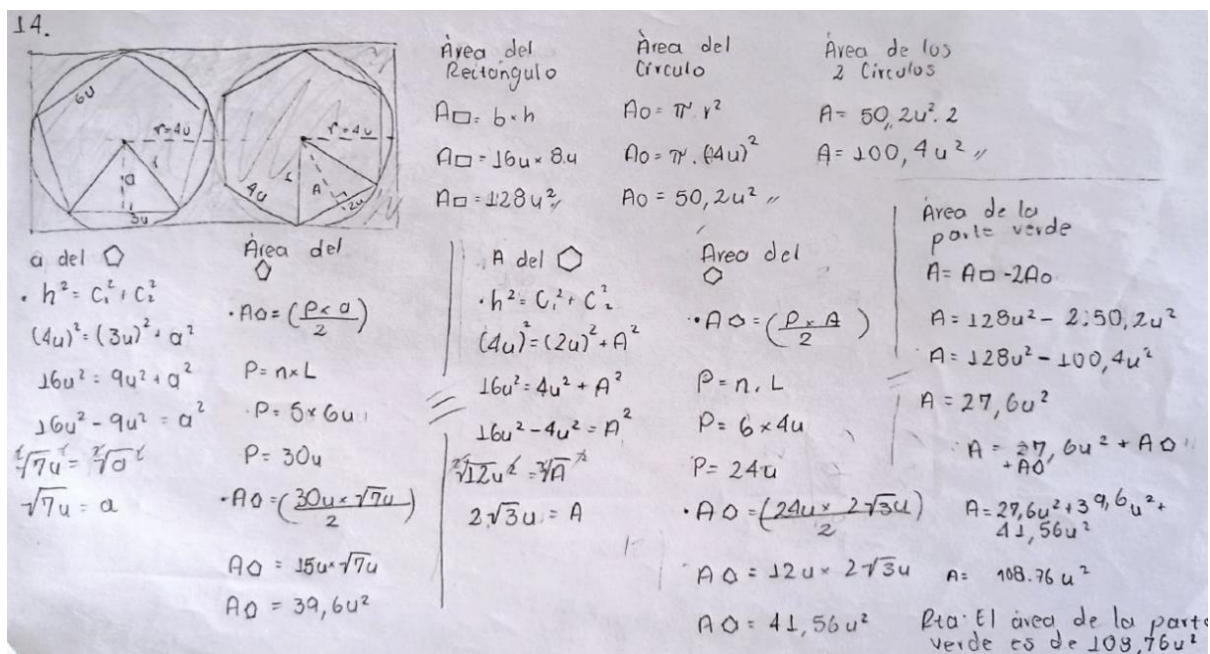 14.
6u
r=4u
r
a
3u
r=4u
4u
r
A
2u
Área del
Rectángulo
A□ = b × h
A□ = 16u × 8u
A□ = 128u² //
Àrea del
Círculo
A○ = π . r²
A○ = π . (4u)²
A○ = 50,2u² //
Área de los
2 Circulos
A = 50,2u² . 2
A = 100,4u² //
a del ⬠
• h² = C₁² + C₂²
(4u)² = (3u)² + a²
16u² = 9u² + a²
16u² - 9u² = a²
²√7u² = ²√a²
√7u = a
Área del
⬠
• A⬠ = (P × a / 2)
P = n × L
P = 5 × 6u
P = 30u
• A⬠ = (30u × √7u / 2)
A⬠ = 15u × √7u
A⬠ = 39,6u²
A del ⬡
• h² = C₁² + C₂²
(4u)² = (2u)² + A²
16u² = 4u² + A²
16u² - 4u² = A²
²√12u² = ²√A²
2√3u = A
Área del
⬡
• A⬡ = (P × A / 2)
P = n . L
P = 6 × 4u
P = 24u
• A⬡ = (24u × 2√3u / 2)
A⬡ = 12u × 2√3u
A⬡ = 41,56u²
Área de la
parte verde
A = A□ - 2A○
A = 128u² - 2.50,2u²
A = 128u² - 100,4u²
A = 27,6u²
A = 27,6u² + A⬠
+ A⬡
A = 27,6u² + 39,6u² +
41,56u²
A = 108.76 u²
Rta: El área de la parte
verde es de 108,76u²